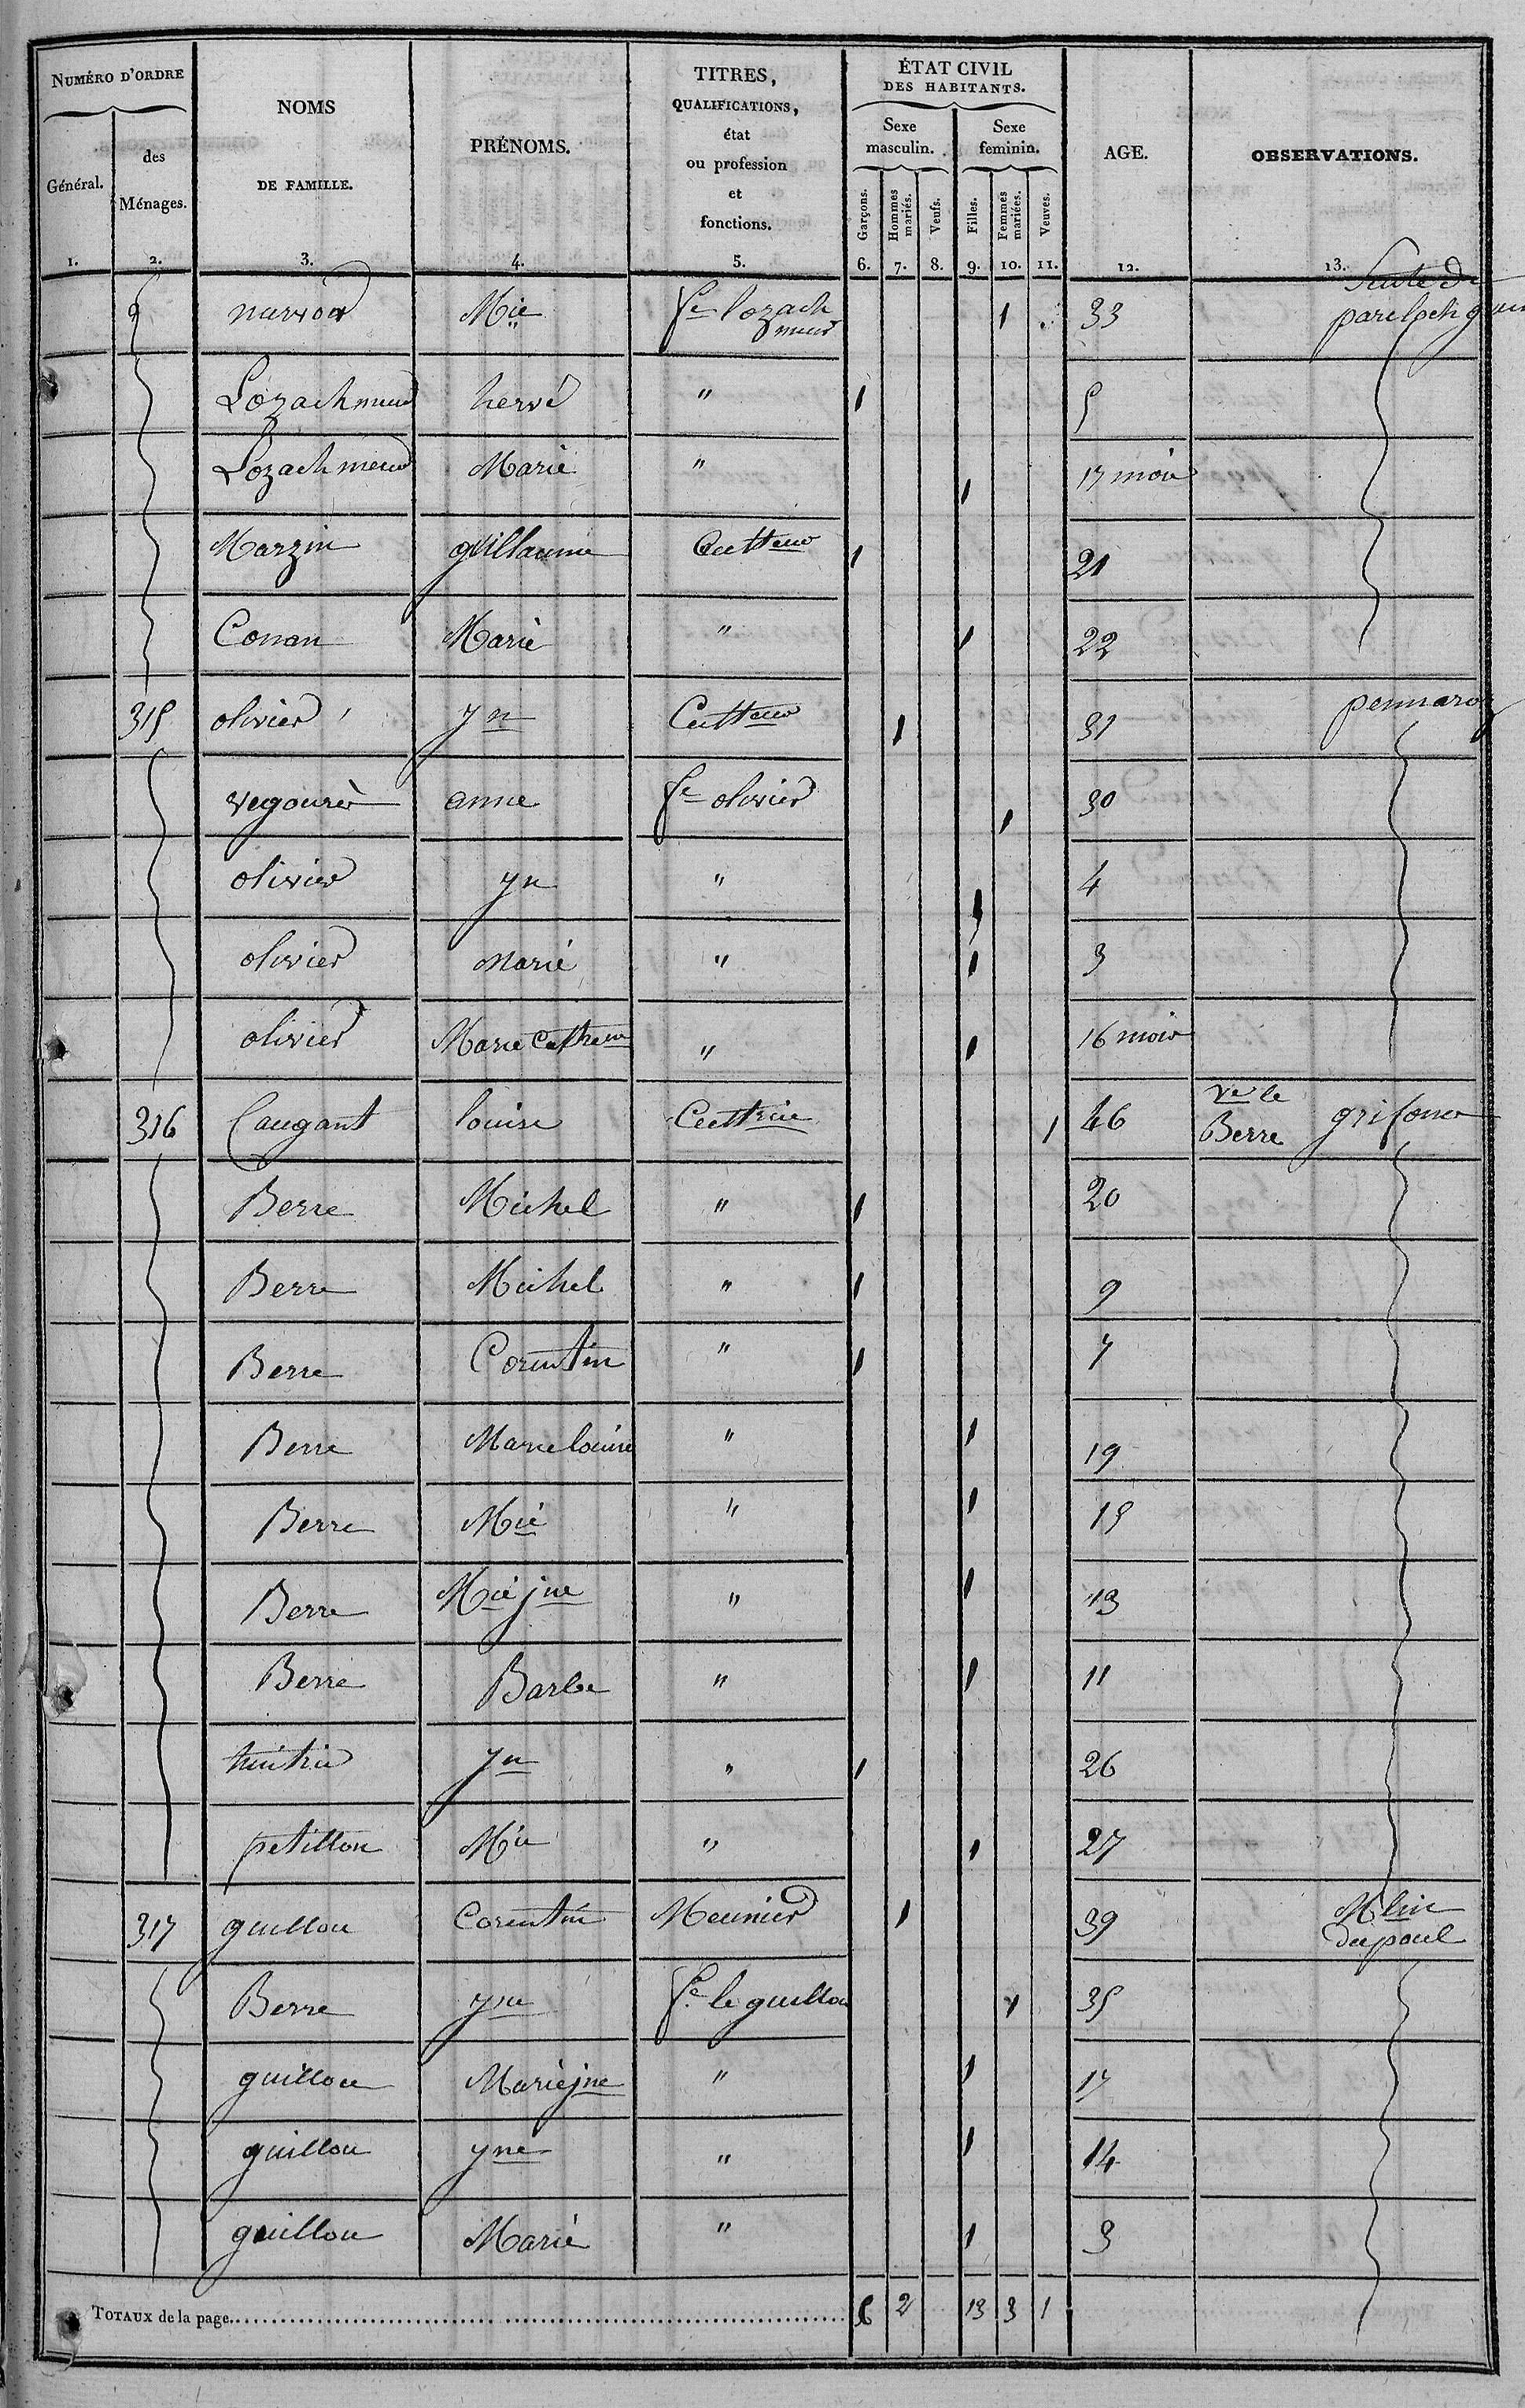 NUMÉRO D'ORDRE
Général.
des Ménages.
NOMS
DE FAMILLE.
PRÉNOMS.
TITRES,
QUALIFICATIONS,
état
ou profession
et
fonctions.
ÉTAT CIVIL
DES HABITANTS.
Sexe masculin.
Sexe feminin.
Garçons.
Hommes mariés.
Veufs.
Filles.
Femmes mariées.
Veuves.
AGE.
OBSERVATIONS.
1. 2. 3. 4. 5. 6. 7. 8. 9. 10. 11. 12. 13.
Suite de
Mie fe lozach meur 1 33
Lozachmeur hervé " 1 5
Lozachmeur Marie " 1 17 mois
Marzin guillaume Cultteur 1 21
Conan Marie " 1 22
315 olivier yn Cultteur 1 31 pennaroz
vegourèr anne fe olivier 1 30
olivier yn " 1 4
olivier Marie " 1 3
olivier Marie Cathrine " 1 16 mois
316 Caugant louise Culttrice 1 46 ve le Berre grifones
Berre Michel " 1 20
Berre Michel " 1 9
Berre Corentin " 1 7
Berre Marie louise " 1 19
Berre Mie " 1 15
Berre Mie jne " 1 13
Berre Barbe " 1 11
yn " 1 26
petillon Mie " 1 27
317 guillou Corentin Meunier 1 39 Mlin du poul
Berre yne fe le guillou 1 35
guillou Marie jne " 1 17
guillou yne " 1 14
guillou Marie " 1 3
TOTAUX de la page 6 2 13 3 1